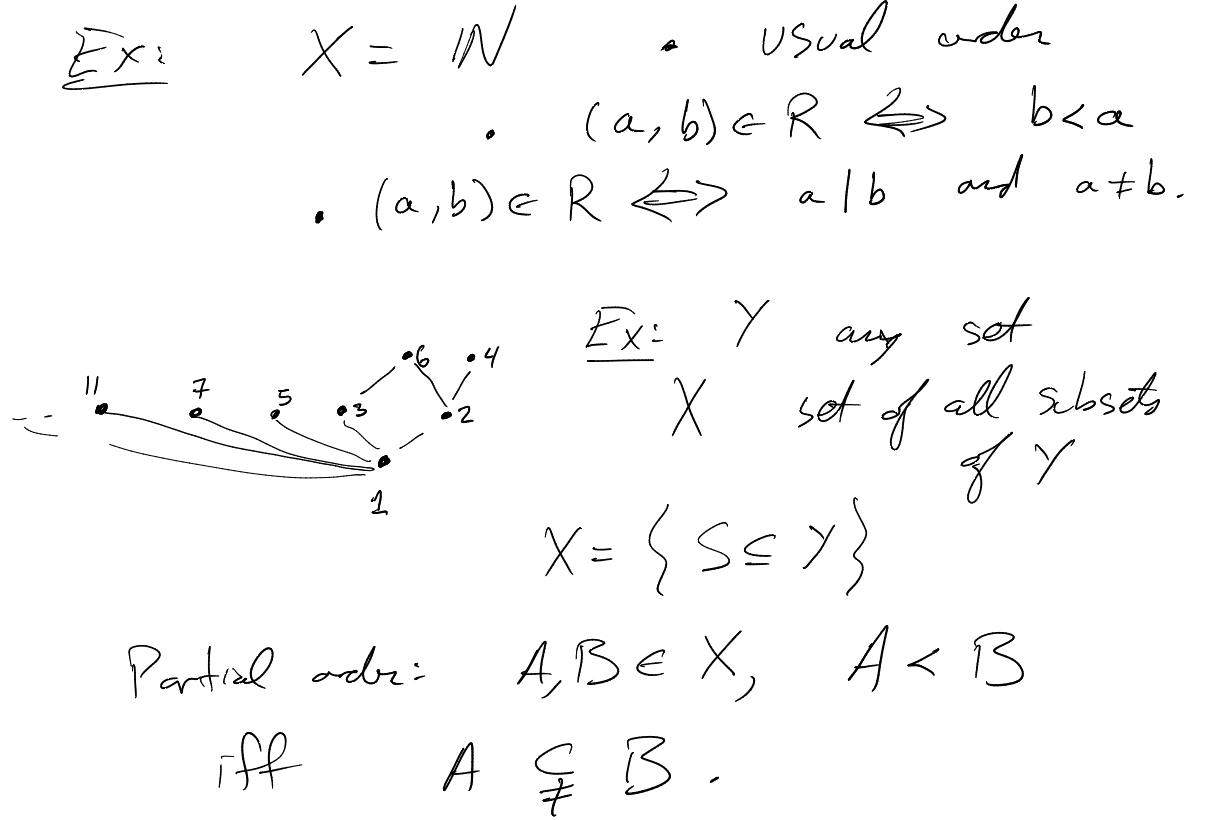 Ex: X = ℕ • usual order
• (a,b) ∈ R ⟺ b < a
• (a,b) ∈ R ⟺ a | b and a ≠ b.
•6 •4
11 7 5 •3 •2
1
Ex: Y any set
X set of all subsets
of Y
X = { S ⊆ Y }
Partial order: A, B ∈ X, A < B
iff A ⊊ B.